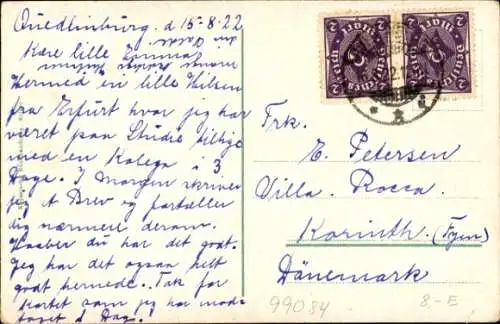 Quedlinburg. d 15-8.22
Kære lille Emma!
Hermed en lille Hilsen
fra Erfurt hvor jeg har
været paa Studie tillige
med en Kolega i 3
Dage. I Morgen skriver
jeg et Brev og fortæller
dig nærmere derom.
Haaber du har det godt.
Jeg har det ogsaa helt
godt hernede. Tak for
Kortet som jeg har mod-
taget i Dag.
Frk.
E. Petersen
Villa Rocca.
Korinth. (Fyen)
Dänemark
99084
8,-E
2 2